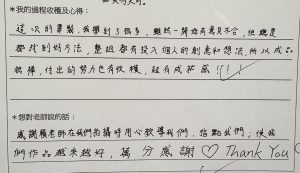 *我的過程收穫及心得:
這次的專題,我學到了很多,雖然一開始有意見不合,但總是
都找到好方法,整組都有投入個人的創意和想法,所以成品
很棒,付出的努力也有收穫,超有成就感!!!
*想對老師說的話:
感謝賴老師在我們拍攝時用心教導我們、指點我們;使我
們作品越來越好,萬分感謝♡Thank You